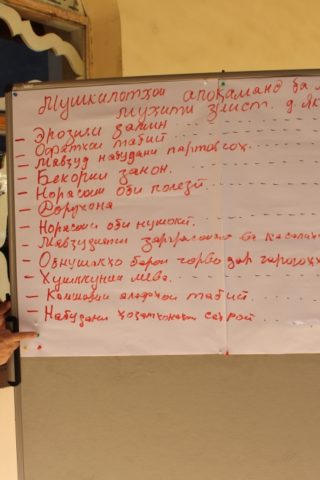 Мушкилотҳои алоқаманд ба
муҳити зист. д.
- Эрозияи замин
- Офатҳои табиӣ
- Мавҷуд набудани партовгоҳ.
- Бекории занон.
- Норасоии оби полезӣ.
- Дорухона
- Норасоии оби нушокӣ.
- Мавҷудияти зараррасонҳо ва касалиҳо
- Обнушакҳо барои чорво дар чарогоҳҳо
- Хушккунии мева.
- Камшавии алафҳои табиӣ.
- Набудани ҳоҷатхонаҳои саҳроӣ